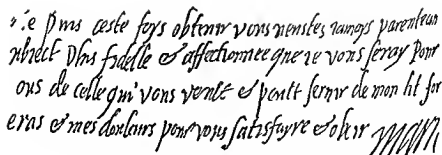 ie puis ceste foys obtenir vous neustes iamays parente au
subiect plus fidelle & affectionnee que ie vous seray pour
ous de celle qui vous veult & peult servir de mon lit for
eras & mes douleurs pour vous satisfayre & obeir